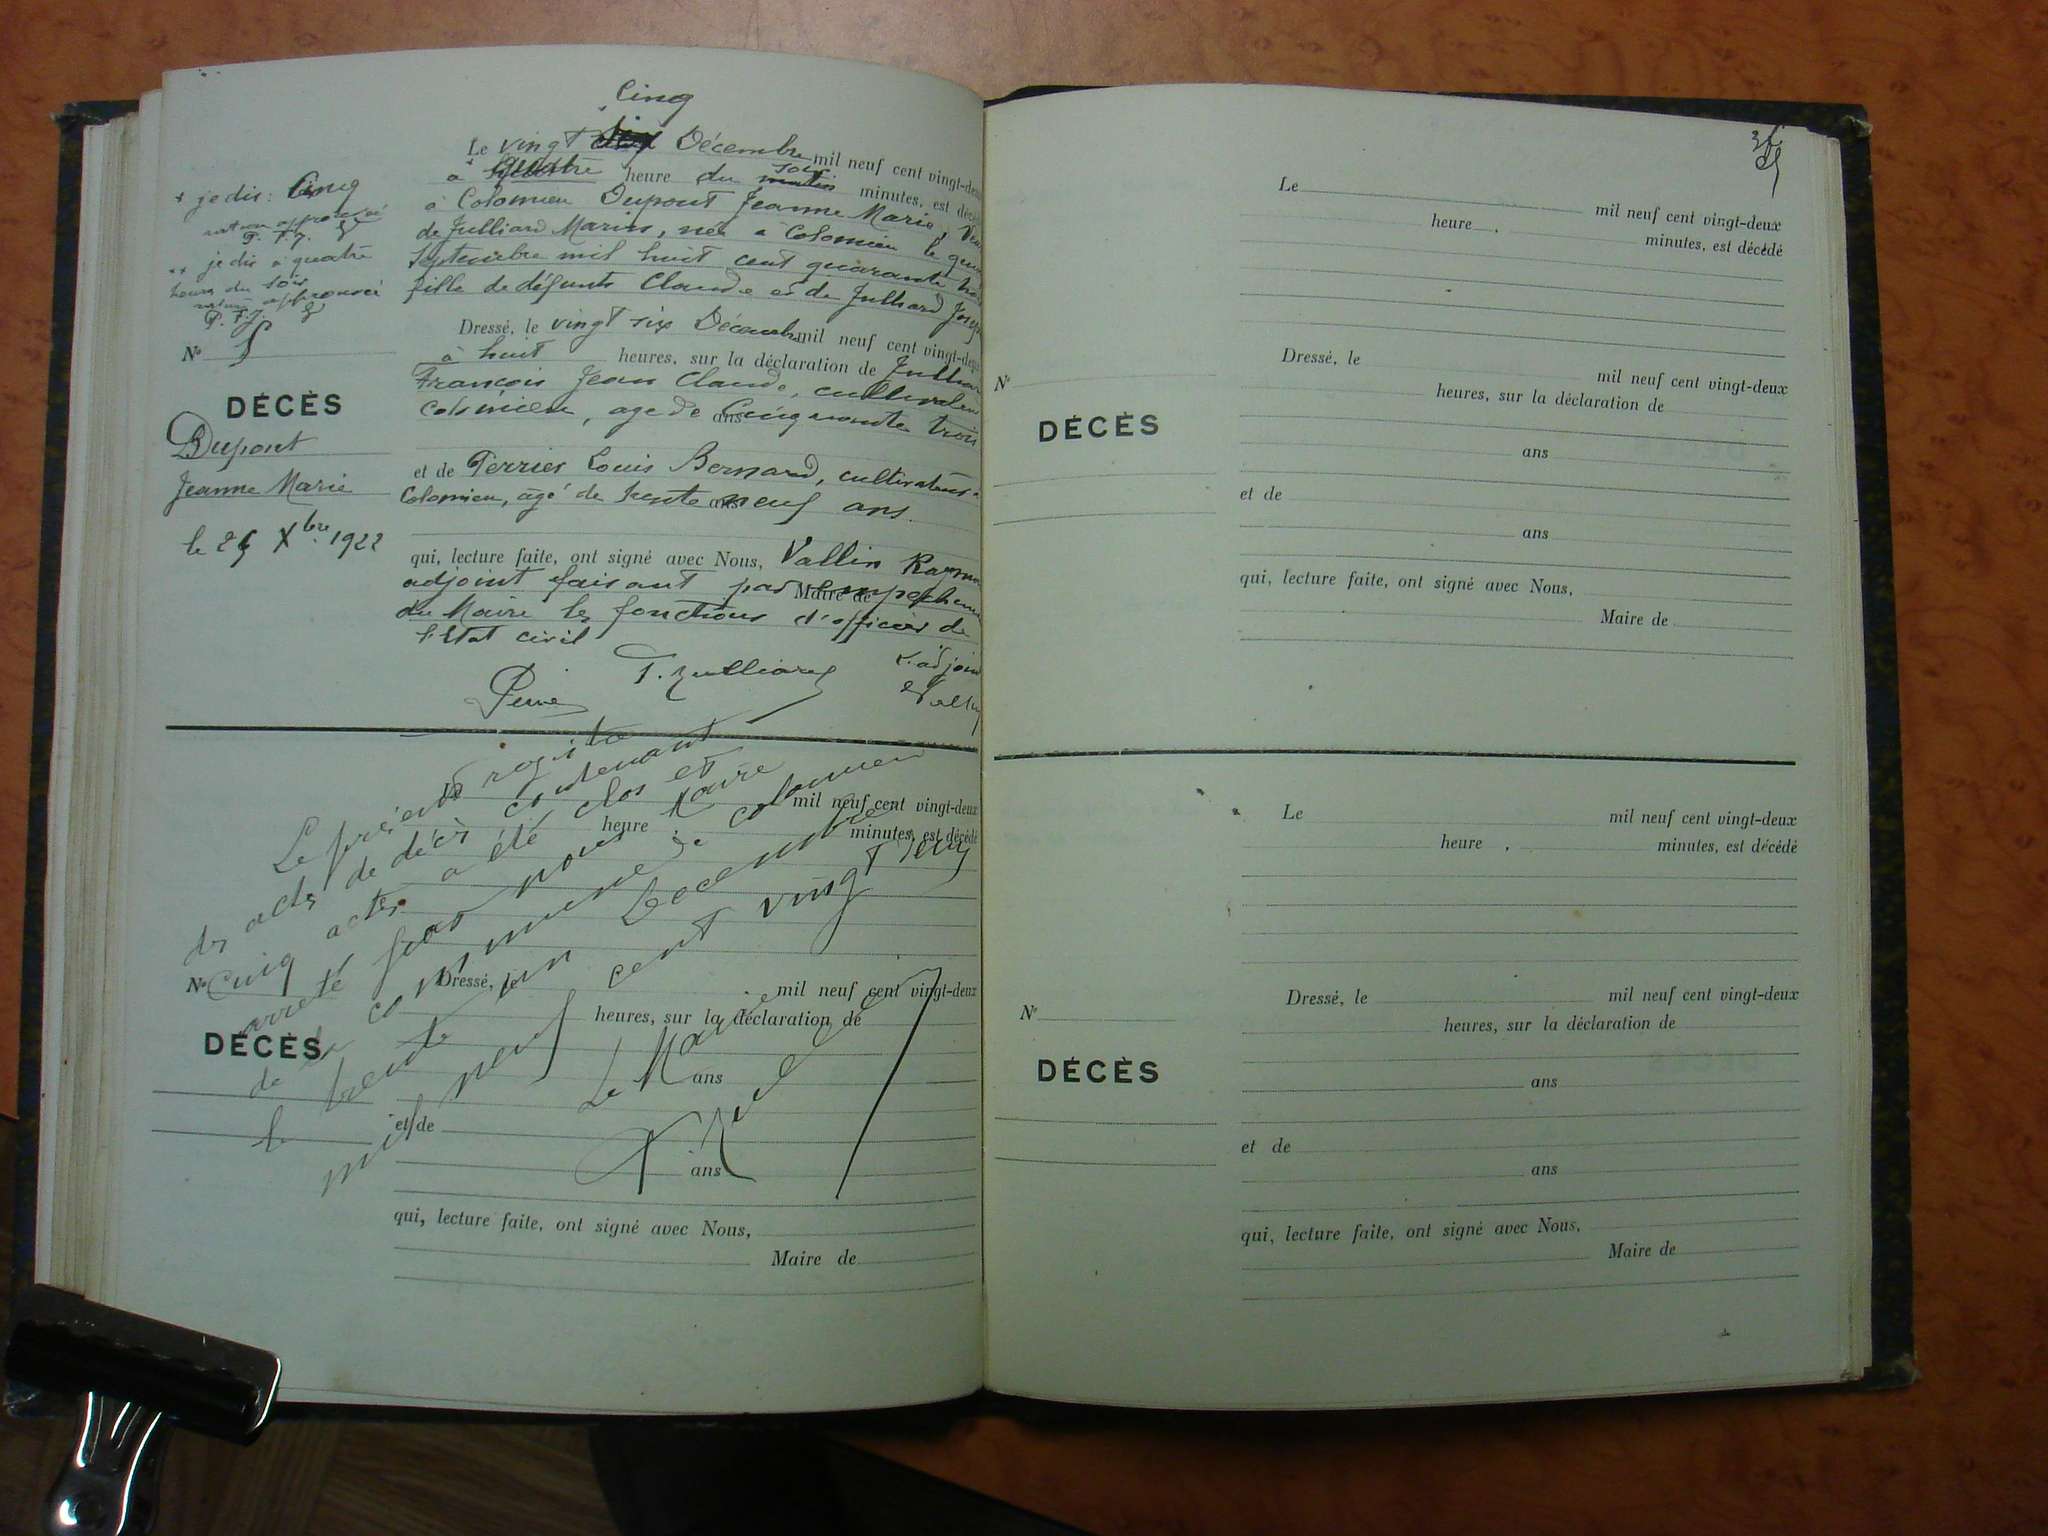 Cinq
Le vingt Décembre mil neuf cent vingt-deux
à quatre heure du soir minutes, est décédé
à Colomieu Dupont Jeanne Marie, Veuve
de Julliard Marin, née à Colomieu le
Septembre mil huit cent quarante
fille de défunts Claude et de Julliard
Dressé, le vingt six Décembre mil neuf cent vingt-deux
à huit heures, sur la déclaration de Julliard
François Jean Claude, cultivateur
Colomieu, age de Cinquante trois
ans
et de Perrier Louis Bernard, cultivateur à
Colomieu, âgé de trente neuf ans.
ans
qui, lecture faite, ont signé avec Nous, Vallin
adjoint faisant par empechement
Maire de
du Maire les fonctions d'officier de
l'Etat civil
L'adjoint
* je dis: Cinq
P. F. J.
** je dis à quatre
heures du soir
P. F. J.
No 5
DÉCÈS
Dupont
Jeanne Marie
le 25 Xbre 1922
Le présent registre
des actes de décès contenant
Cinq actes a été clos et
arreté par nous Maire
de la commune de Colomieu
le trente un Decembre
mil neuf cent vingt deux
Le Maire
Le
mil neuf cent vingt-deux
heure
minutes, est décédé
No
DÉCÈS
Dressé, le
mil neuf cent vingt-deux
heures, sur la déclaration de
ans
et de
ans
qui, lecture faite, ont signé avec Nous,
Maire de
Le mil neuf cent vingt-deux
heure minutes, est décédé
Dressé, le mil neuf cent vingt-deux
No
heures, sur la déclaration de
DÉCÈS
ans
et de
ans
qui, lecture faite, ont signé avec Nous,
Maire de
Le mil neuf cent vingt-deux
heure minutes, est décédé
Dressé, le mil neuf cent vingt-deux
No
heures, sur la déclaration de
DÉCÈS
ans
et de
ans
qui, lecture faite, ont signé avec Nous,
Maire de